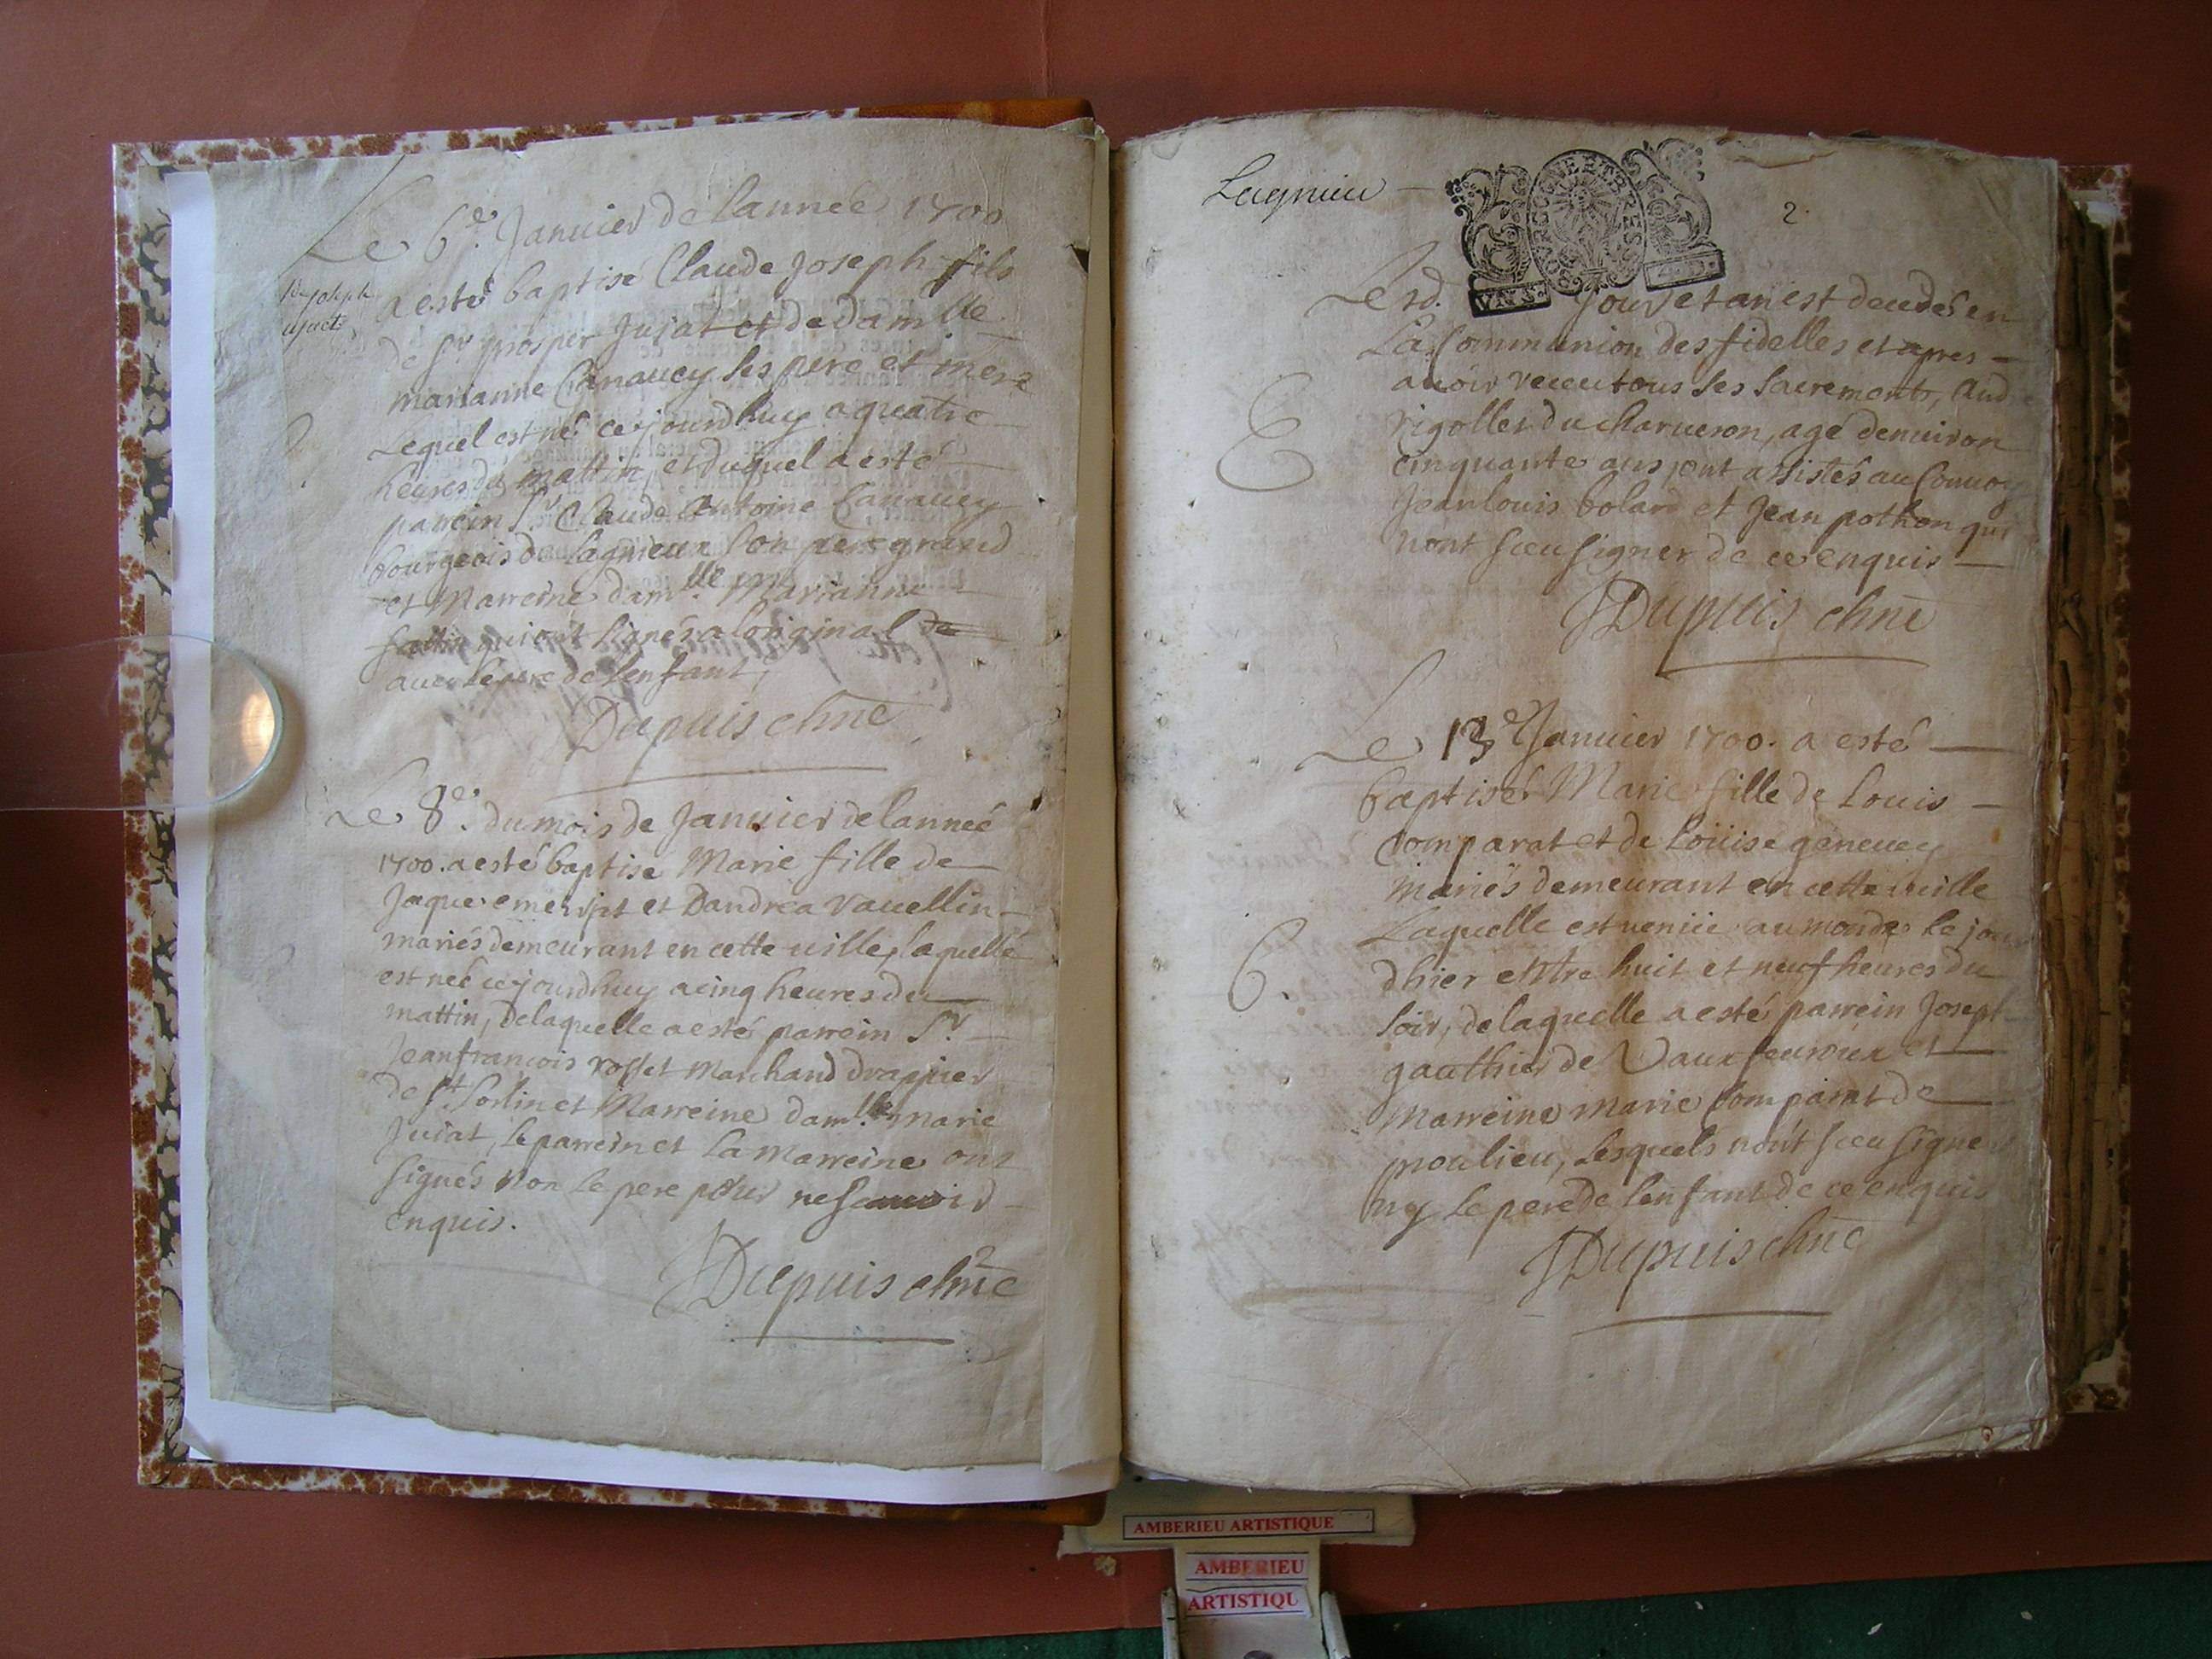 Le 6e. Januier de lannée 1700
a esté baptisé Claude Joseph fils
de Sr prosper Jujat et de damlle
marianne Canaucy ses pere et mere
Lequel est né cejourdhuy a quatre
heures du mattin, et duquel a esté
parrein Sr Claude Antoine Canaucy
bourgeois de Lagnieux son pere grand
et Marreine damlle Marianne
qui ont signés a loriginal de
auec le pere de lenfant,
Dupuis chne
Le 8e. du mois de Januier de lanneé
1700. a esté baptise Marie fille de
Jaque et Dandrea vauellin
mariés demeurant en cette uille, laquelle
est neé cejourdhuy a cinq heures du
mattin, delaquelle a esté parrein Sr.
Jean francois rosset Marchand drappier
de St Sorlin et Marreine damlle marie
Jujat, le parrein et La marreine ont
signés non le pere pour ne scauoir
enquis.
Dupuis chne
Lagnieu
BOURGOGNE ET BRESSE
VN S.
2.
Lesd. jour et an est decedé en
La Communion des fidelles et apres
auoir receu tous ses sacrements, And
rigollet du charueron, agé denuiron
cinquante ans, ont assistés au Conuoy
Jean louis bolard et Jean pothon qui
nont sceu signer de ce enquis
Dupuis chne
Le 13e Januier 1700. a esté
baptisé Marie fille de Louis
Comparat et de Loüise geneuey
mariés demeurant en cette uille
Laquelle est venüe au monde le jour
dhier entre huit et neuf heures du
soir, de laquelle a esté parrein Joseph
gauthier de Vaux feuroux et
Marreine marie Comparat de
proulieu, Lesquels nont sceu signer
ny le pere de lenfant de ce enquis
Dupuis chne
AMBERIEU ARTISTIQUE
AMBERIEU
ARTISTIQU